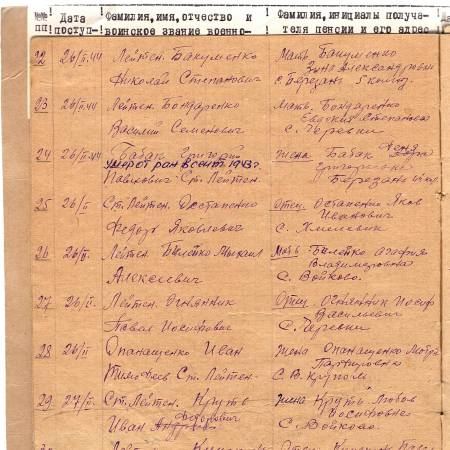 №№ Дата Фамилия, имя, отчество и Фамилия, инициалы получа-
пп поступ- воинское звание военно- теля пенсии и его адрес
22 26/II.44 Лейтен. Бакуменко Мать Бакуменко
Николай Степанович Зина Александровна
с. Березань
23 26/II.44 Лейтен. Бондаренко Мать Бондаренко
Василий Семенович
24 26/II.44 Бабак Григорий Жена Бабак
умер от ран в сент 1943 г.
Павлович Ст. Лейтен. Березань
25 26/II Ст. Лейтен. Остапенко Отец Остапенко Яков
Федор Яковлевич Иванович
26 26/II. Лейтен. Билейко Михаил Мать Билейко Агафия
Алексеевич Владимировна
с. Войково.
27 26/II. Лейтен. Огнянник Отец Огнянник Иосиф
Павел Иосифович Васильевич
28 26/II Опанащенко Иван Жена Опанащенко Мотря
Тимофеев. Ст. Лейтен.
29 27/II. Ст. Лейтен. Круть Жена Круть Любов
Федорович Иосифовна
Иван с. Войково.